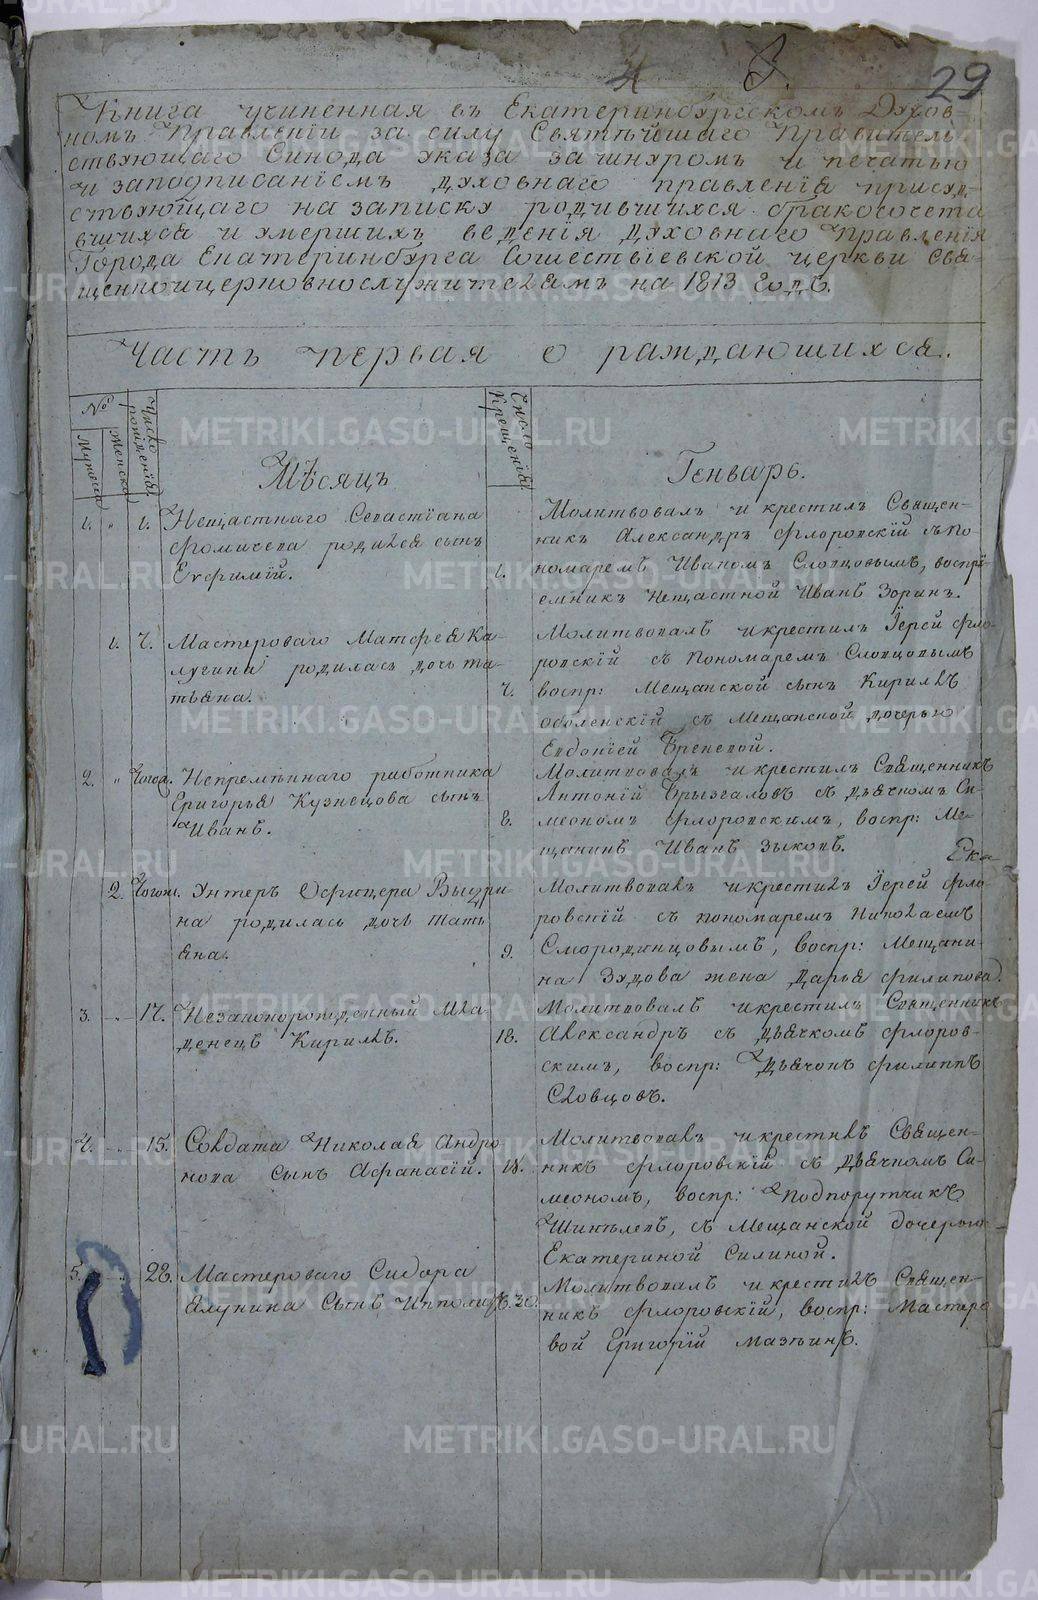 29
Книга учиненная въ Екатеринбургскомъ Духов-
номъ Правленіи за силу Святѣйшаго Правитель
ствующаго Синода указа за шнуромъ и печатью
и заподписаніемъ духовнаго правленія присуд-
ствующаго на записку родившихся бракосочета
вшихся и умершихъ веденія духовнаго Правленія
Города Екатеринбурга Сошествіевской церкви Свя-
щенноицерковнослужителямъ на 1813 годъ.
Часть первая о раждающихся.
№
Мужеска
Женска
Число рожденія
Мѣсяцъ
Число Крещенія
Генварь.
1. " 1. Нещастнаго Севастіана
Фомичева родился сынъ
Евфимій.
1.
Молитвовалъ и крестилъ Священ-
никъ Александръ Флоровскій съ по-
номаремъ Иваномъ Словцовымъ, воспрі-
емникъ Нещастной Иванъ Зоринъ.
1. 7. Мастероваго Матфея Ка-
лугина родилась дочь та-
тьяна.
7.
Молитвовалъ и крестилъ Іерей Фло-
ровскій съ пономаремъ Словцовымъ
воспр: Мещанской сынъ Кирилъ
оболенскій съ Мещанской дочерью
Евдокіей
2. " Тогож. Непремѣннаго работника
Григорья Кузнецова сынъ
Иванъ.
8.
Молитвовалъ и крестилъ Священникъ
Антоній Брызгаловъ съ дьячкомъ Си-
меономъ Флоровскимъ, воспр: Ме-
щанинъ Иванъ Зыковъ.
Ека-
2. Тогож. Унтеръ Офицера
на родилась дочь Тать
яна.
9.
Молитвовалъ и крестилъ Іерей Фло-
ровскій съ пономаремъ Николаемъ
Смородинцовымъ, воспр: Мещани-
на Зудова жена Дарья Филипова.
3. " 17. Незаконорожденный Мла-
денецъ Кирилъ.
18.
Молитвовалъ и крестилъ Священникъ
Александръ съ дьячкомъ Флоров-
скимъ, воспр: Дьячокъ Филиппъ
Словцовъ.
4. " 15. Солдата Николая Андро
нова сынъ Афанасій.
18.
Молитвовалъ и крестилъ Священ-
никъ Флоровскій съ Дьячкомъ Си-
меономъ, воспр: Подпорутчикъ
съ Мещанской дочерью
Екатериной Силиной.
5. " 28. Мастероваго Сидора
Ялунина сынъ Ипполитъ.
30.
Молитвовалъ и крестилъ Священ-
никъ Флоровскій, воспр: Мастеро
вой Григорій Мазѣинъ.
METRIKI.GASO-URAL.RU